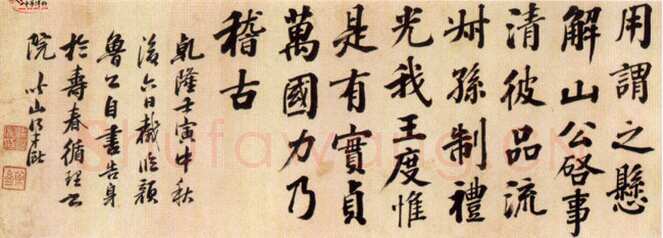 用謂之懸
解山公啓事
清彼品流
叔孫制禮
光我王度惟
是有實貞
萬國力乃
稽古
乾隆壬寅中秋
後六日敬臨顏
魯公自書告身
於壽春循理書
院
Shufawang.CN